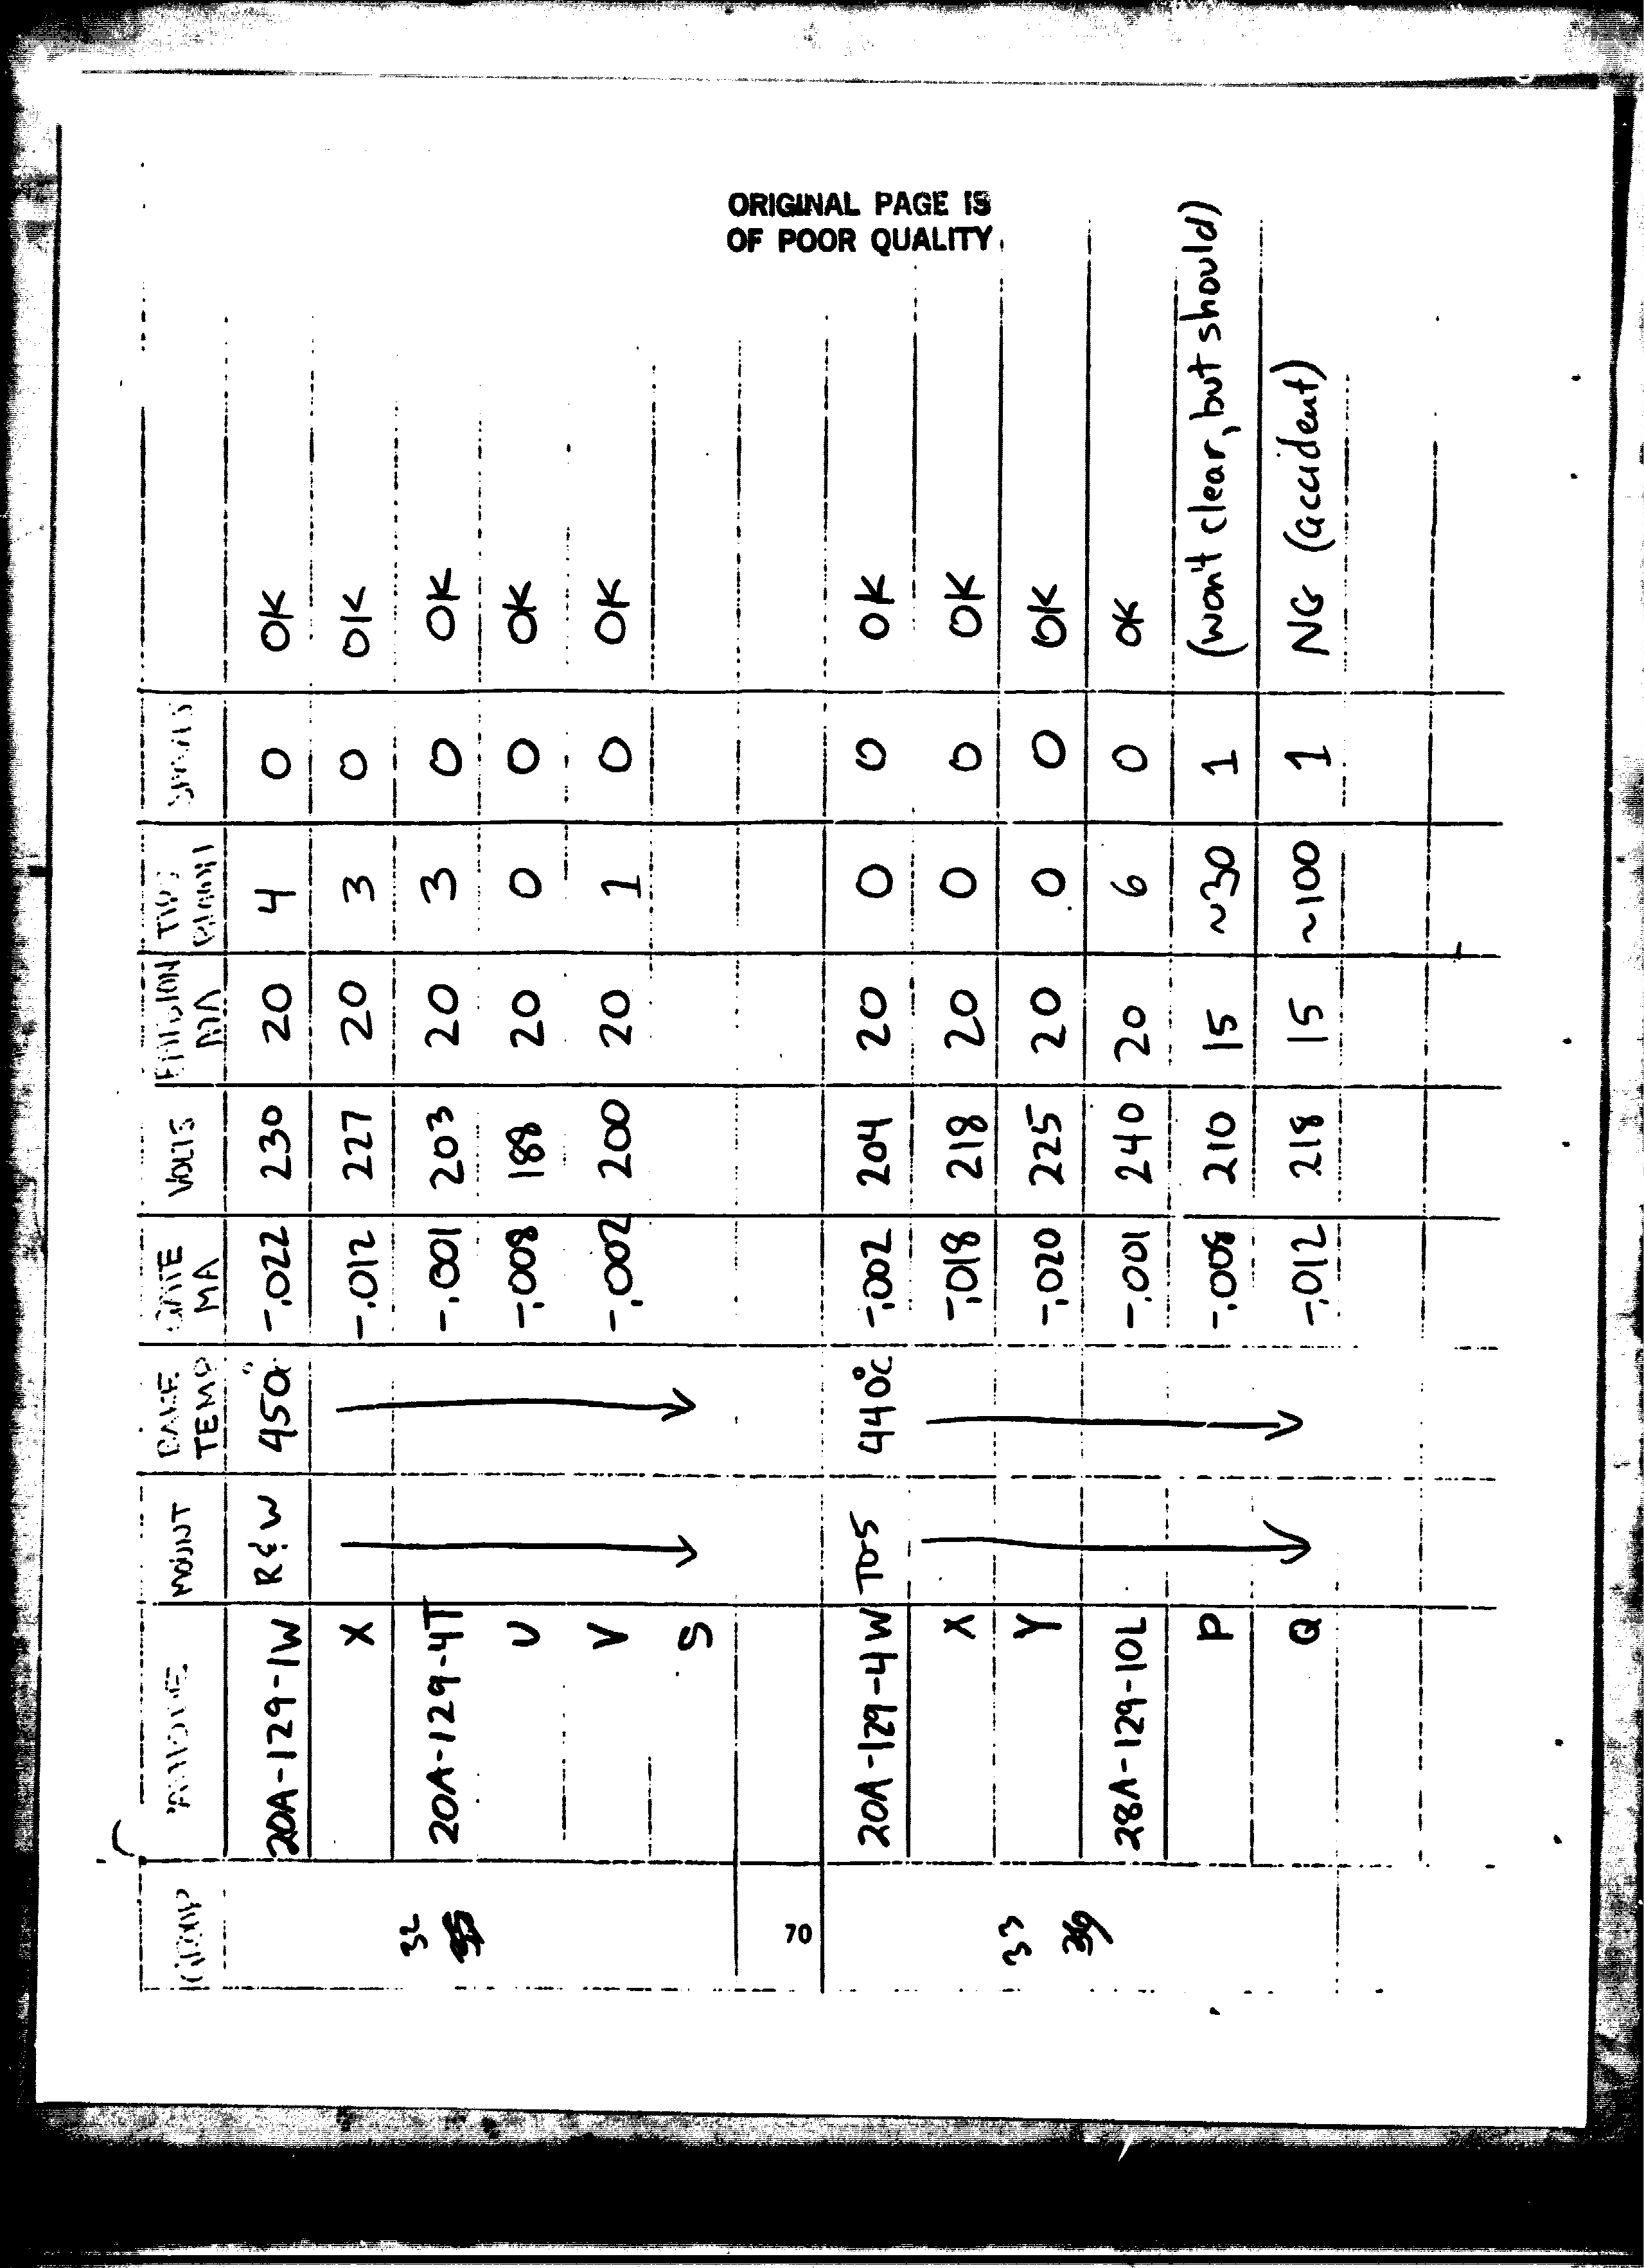 ORIGINAL PAGE IS
OF POOR QUALITY
GROUP MOUNT BAKE TEMP GATE MA VOLTS EMISSION MA
32 20A-129-1W R&W 450° -.022 230 20 4 0 OK
X -.012 227 20 3 0 OK
20A-129-4T -.001 203 20 3 0 OK
U -.008 188 20 0 0 OK
V -.002 200 20 1 0 OK
S
70
33 20A-129-4W TO5 440°C -.002 204 20 0 0 OK
X -.018 218 20 0 0 OK
Y -.020 225 20 0 0 OK
28A-129-10L -.001 240 20 6 0 OK
P -.008 210 15 ~30 1 (won't clear, but should)
Q -.012 218 15 ~100 1 NG (accident)